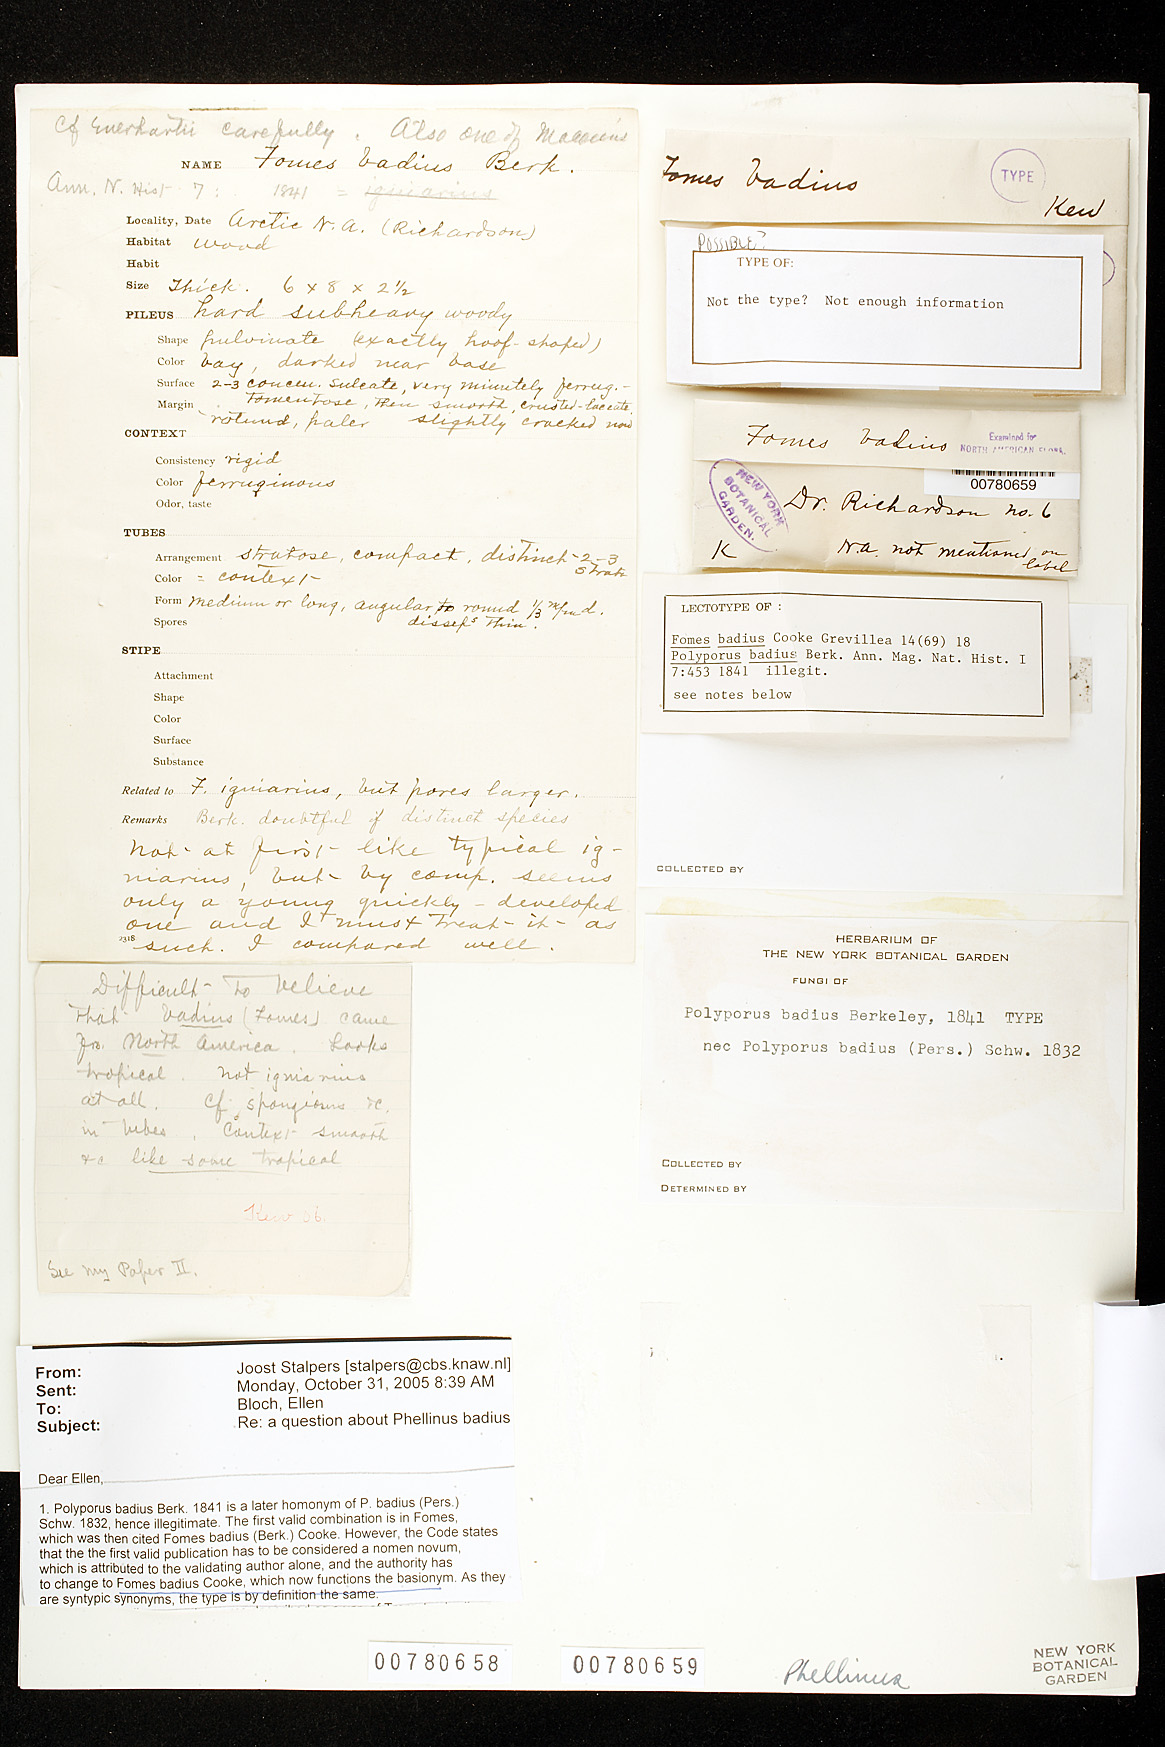 Cf Everhartii carefully. Also one of Macoun's
NAME Fomes badius Berk.
Ann. N. Hist 7: 1841 = igniarius
Locality, Date Arctic N.A. (Richardson)
Habitat wood
Habit
Size Thick. 6 x 8 x 2½
PILEUS hard subheavy woody
Shape pulvinate (exactly hoof-shaped)
Color bay, darked near base
Surface 2-3 concen. sulcate, very minutely ferrug.-
tomentose, then smooth, crusted-laccate
Margin rotund, paler slightly cracked now
CONTEXT
Consistency rigid
Color ferruginous
Odor, taste
TUBES
Arrangement stratose, compact, distinct 2-3
strata
Color = context
Form medium or long, angular to round ⅓ m/m d.
dissep.s thin.
Spores
STIPE
Attachment
Shape
Color
Surface
Substance
Related to F. igniarius, but pores larger.
Remarks Berk. doubtful if distinct species
Not at first like typical ig-
niarius, but by comp. seems
only a young quickly-developed
one and I must treat it as
2318 such. I compared well.
Difficult to believe
that badius (Fomes) came
fro. North America. Looks
tropical. Not igniarius
at all. Cf spongiosus &c.
in tubes. Context smooth
&c like some tropical
Kew 06.
See my Paper II.
From: Joost Stalpers [stalpers@cbs.knaw.nl]
Sent: Monday, October 31, 2005 8:39 AM
To: Bloch, Ellen
Subject: Re: a question about Phellinus badius
Dear Ellen,
1. Polyporus badius Berk. 1841 is a later homonym of P. badius (Pers.)
Schw. 1832, hence illegitimate. The first valid combination is in Fomes,
which was then cited Fomes badius (Berk.) Cooke. However, the Code states
that the the first valid publication has to be considered a nomen novum,
which is attributed to the validating author alone, and the authority has
to change to Fomes badius Cooke, which now functions the basionym. As they
are syntypic synonyms, the type is by definition the same.
Fomes badius
TYPE
Kew
POSSIBLE?
TYPE OF:
Not the type? Not enough information
Fomes badius
Examined for
NORTH AMERICAN FLORA.
00780659
NEW YORK
BOTANICAL
GARDEN.
Dr. Richardson no. 6
K N.A. not mentioned on
label
LECTOTYPE OF :
Fomes badius Cooke Grevillea 14(69) 18
Polyporus badius Berk. Ann. Mag. Nat. Hist. I
7:453 1841 illegit.
see notes below
COLLECTED BY
HERBARIUM OF
THE NEW YORK BOTANICAL GARDEN
FUNGI OF
Polyporus badius Berkeley, 1841 TYPE
nec Polyporus badius (Pers.) Schw. 1832
COLLECTED BY
DETERMINED BY
00780658
00780659
Phellinus
NEW YORK
BOTANICAL
GARDEN